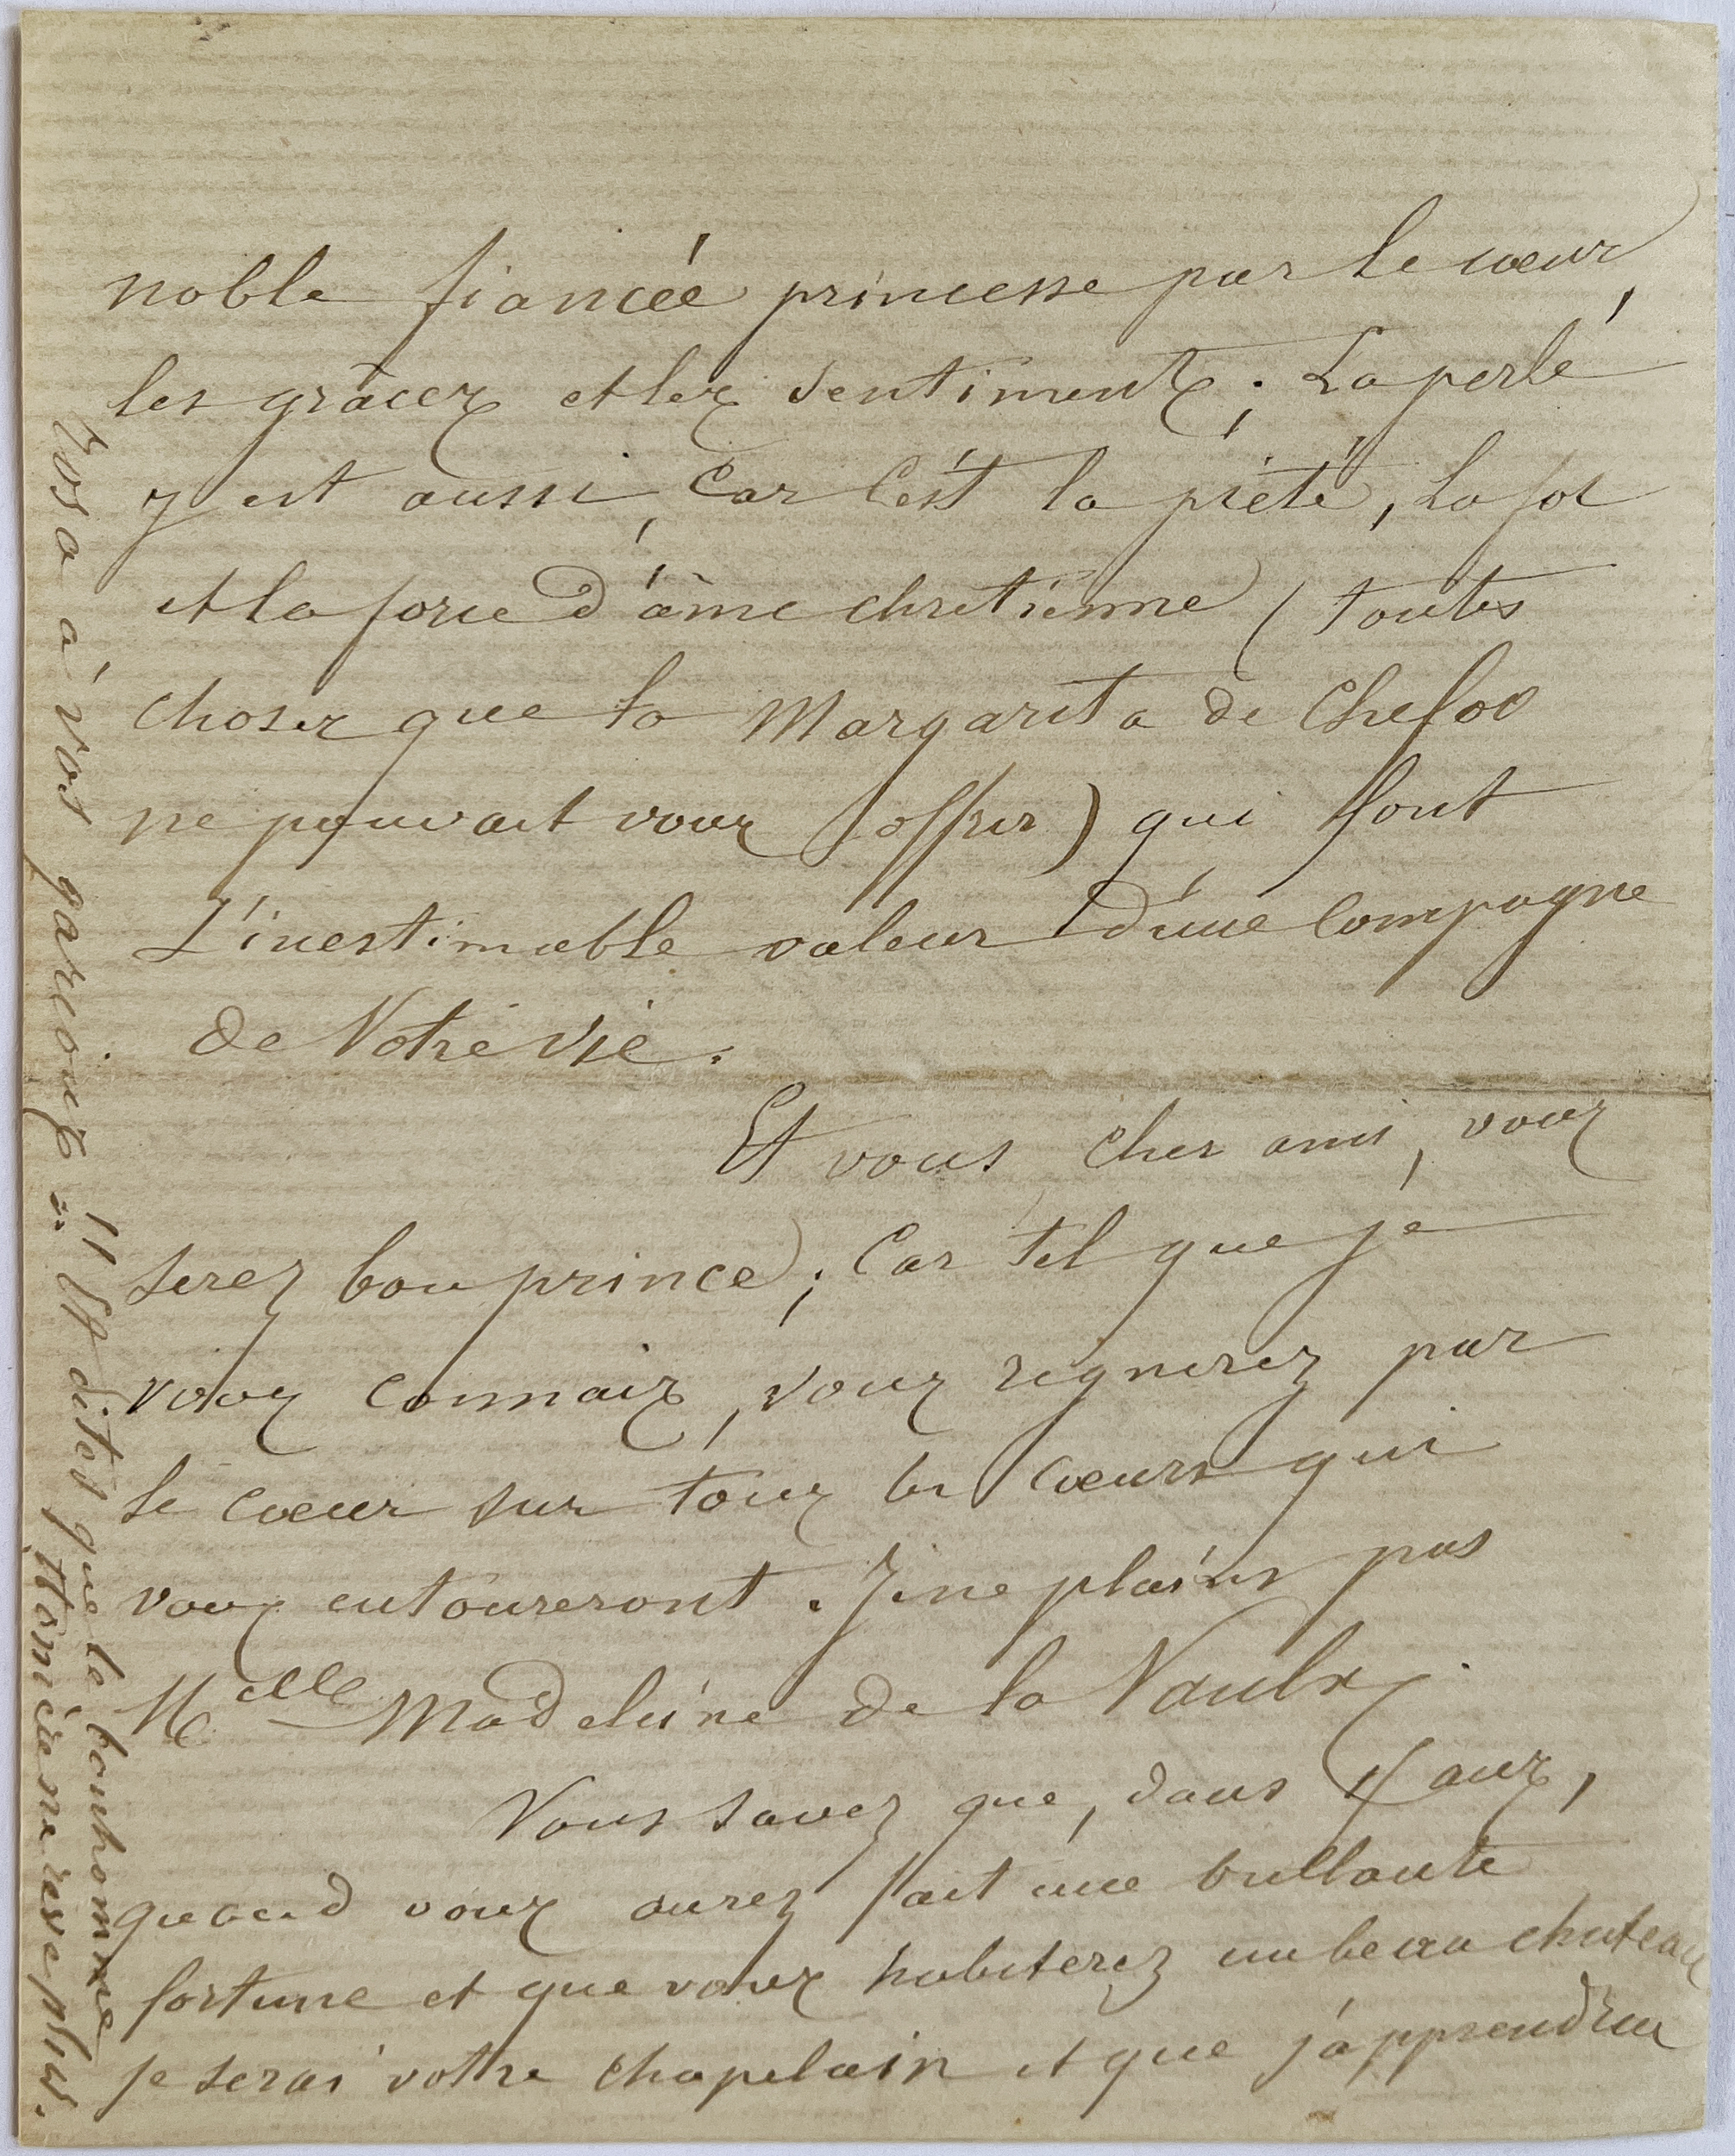 noble fiancée princesse par le cœur,
les grâces et les sentiments ; La perle
y est aussi, Car C'est la piété, La foi
et la force d'âme chrétienne ( toutes
choses que la Margarita de Chefoo
ne pouvait vous offrir ) qui font
L'inestimable valeur d'une Compagne
de Notre vie.
Et vous cher ami, vous
serez bon prince ; Car tel que je
vous connais, vous règnerez par
le cœur sur tous les cœurs qui
vous entoureront. Je ne plains pas
Melle Madeleine de la Vaulx.
Vous savez que, dans X ans,
quand vous aurez fait une brillante
fortune et que vous habiterez un beau chateau
je serai votre chapelain et que j'apprendrai
à vos garçons : " Et dites que le bonhomme
ne rêve plus.